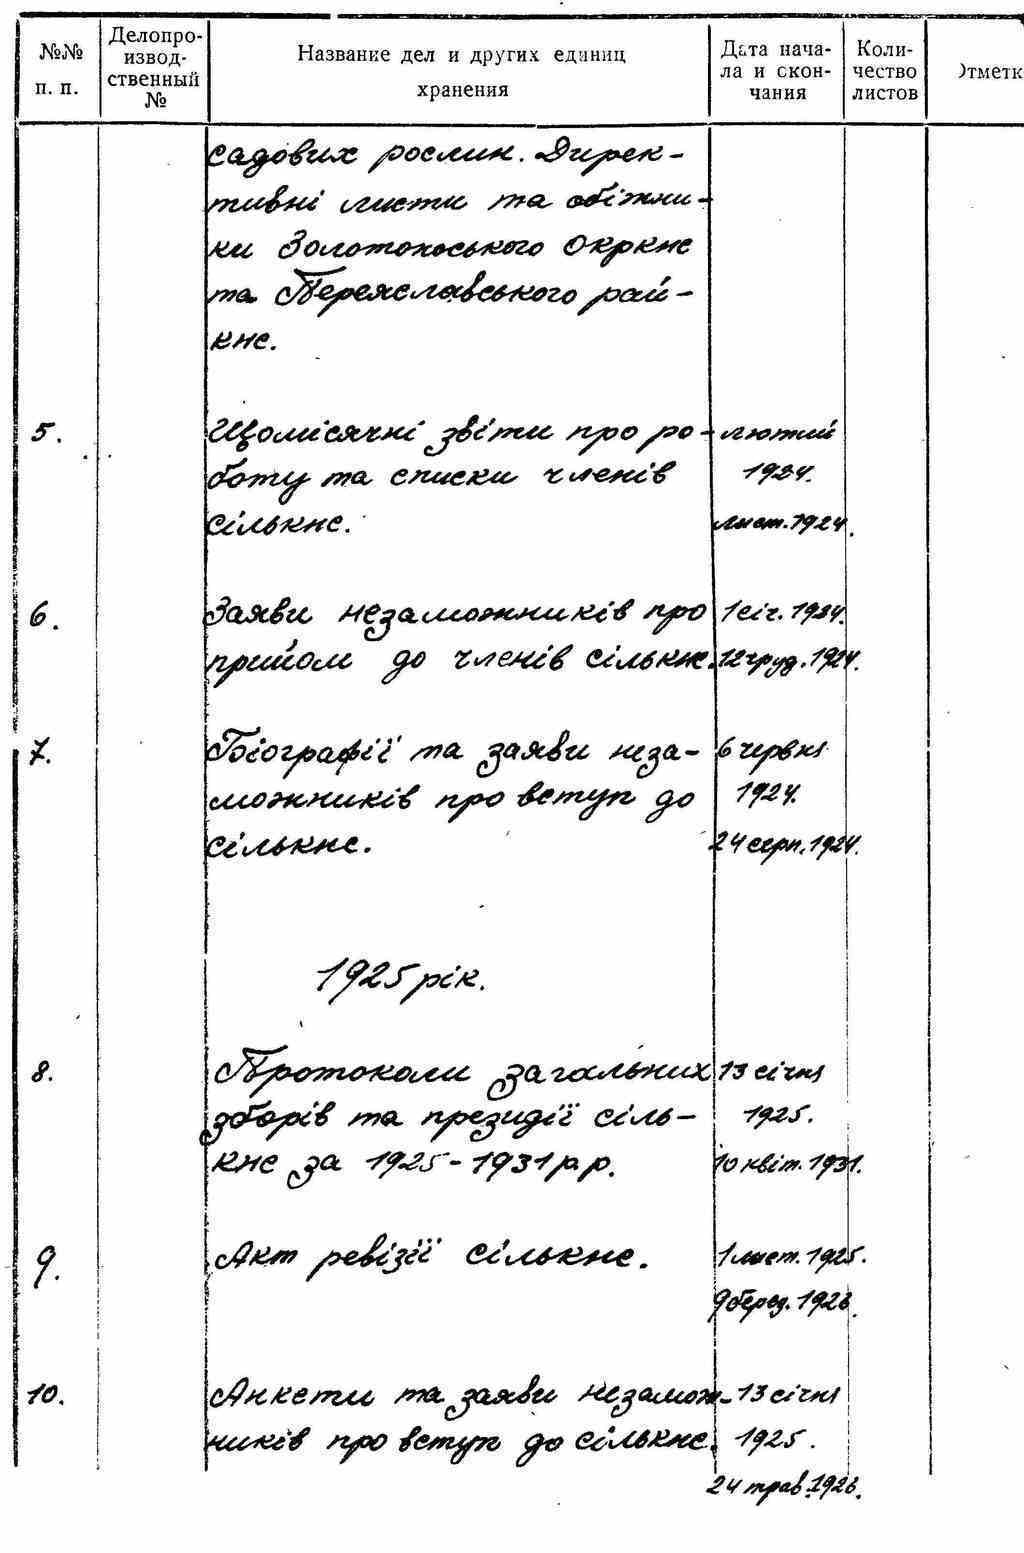 №№ п. п.
Делопро-
извод-
ственный
№
Название дел и других единиц
хранения
Дата нача-
ла и окон-
чания
Коли-
чество
листов
Отметк
садових рослин. Дирек-
тивні листи та обіжни-
ки Золотоноського Окркнс
та Переяславського рай-
кнс.
5. Щомісячні звіти про ро- лютий
боту та списки членів 1924.
сількнс. лист. 1924.
6. Заяви незаможників про 1 січ. 1924.
прийом до членів сількнс. 12 груд. 1924.
7. Біографії та заяви неза- 6 червня
можників про вступ до 1924.
сількнс. 24 серп. 1924.
1925 рік.
8. Протоколи загальних 13 січня
зборів та президії сіль- 1925.
кнс за 1925-1931 р.р. 10 квіт. 1931.
9. Акт ревізії сількнс. 1 лист. 1925.
9 берез. 1926.
10. Анкети та заяви незамож- 13 січня
ників про вступ до сількнс. 1925.
24 трав. 1926.